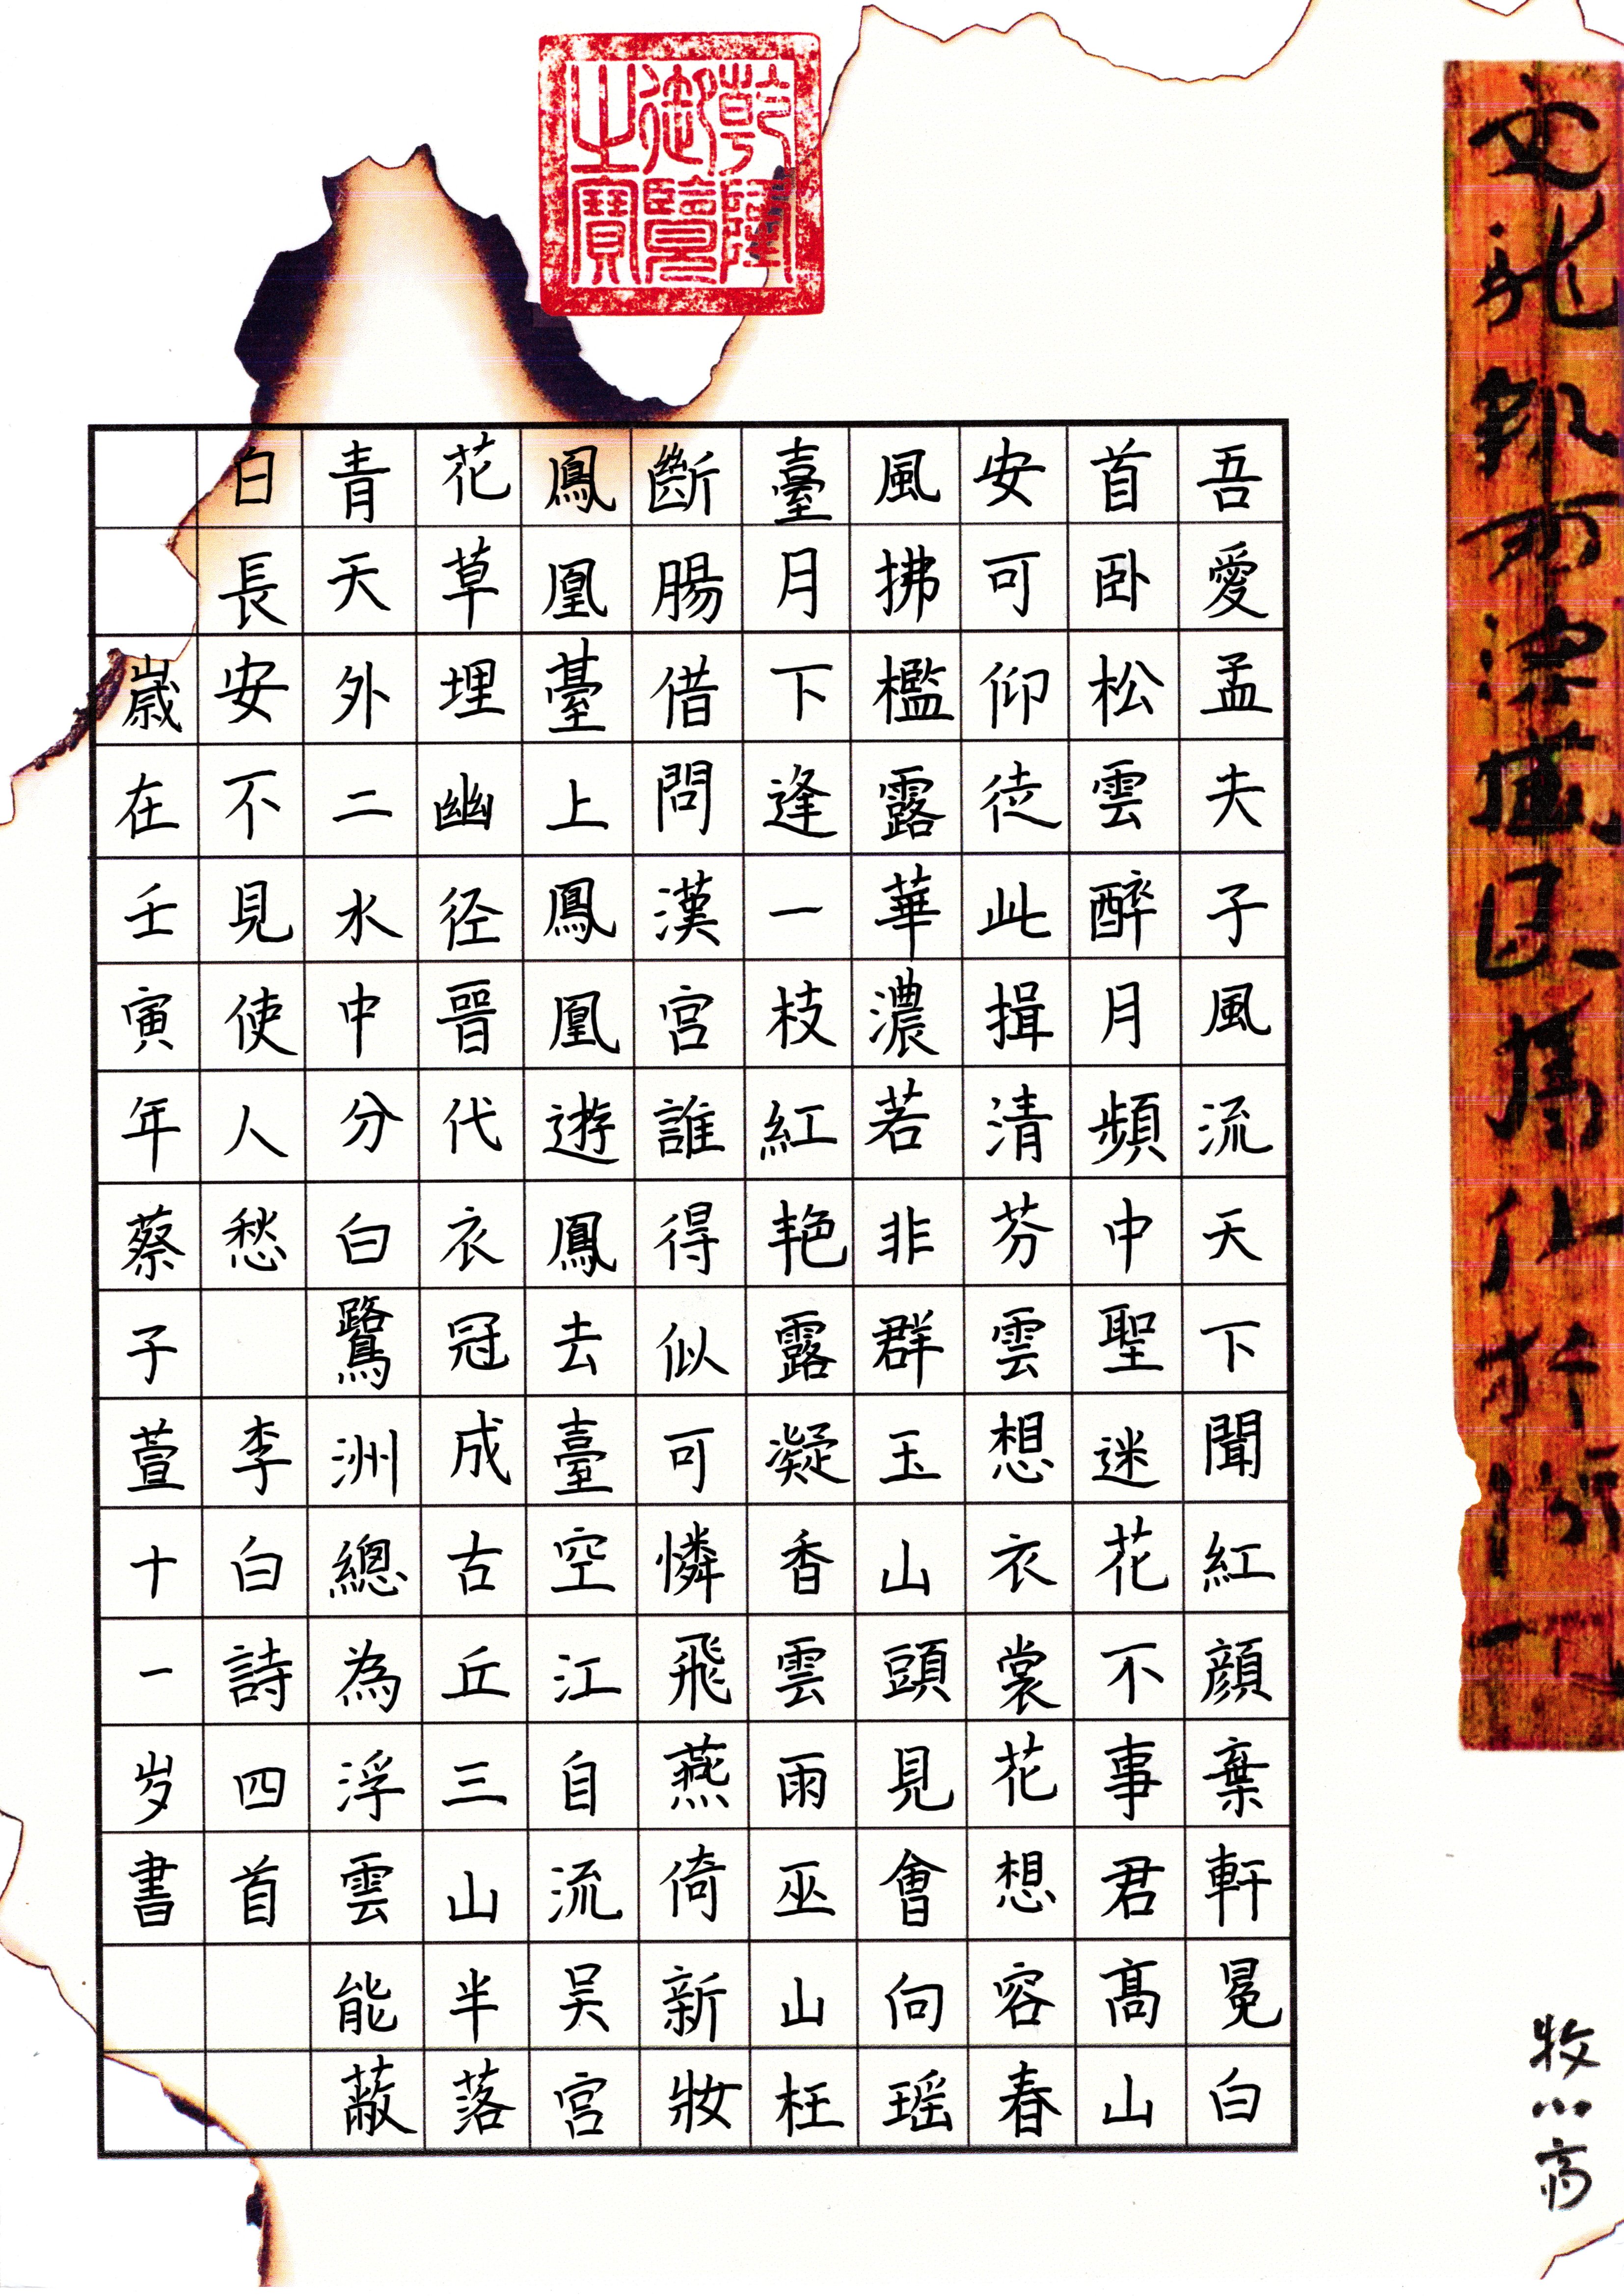 牧心斋
吾愛孟夫子風流天下聞紅顔棄軒冕白
首卧松雲醉月頻中聖迷花不事君髙山
安可仰徒此揖清芬雲想衣裳花想容春
風拂檻露華濃若非群玉山頭見會向瑶
臺月下逢一枝紅艳露凝香雲雨巫山枉
斷腸借問漢宮誰得似可憐飛燕倚新妝
鳳凰臺上鳳凰遊鳳去臺空江自流吴宮
花草埋幽径晉代衣冠成古丘三山半落
青天外二水中分白鷺洲總為浮雲能蔽
日長安不見使人愁 李白詩四首
歲在壬寅年蔡子萱十一岁書
乾隆
御覽
之寶